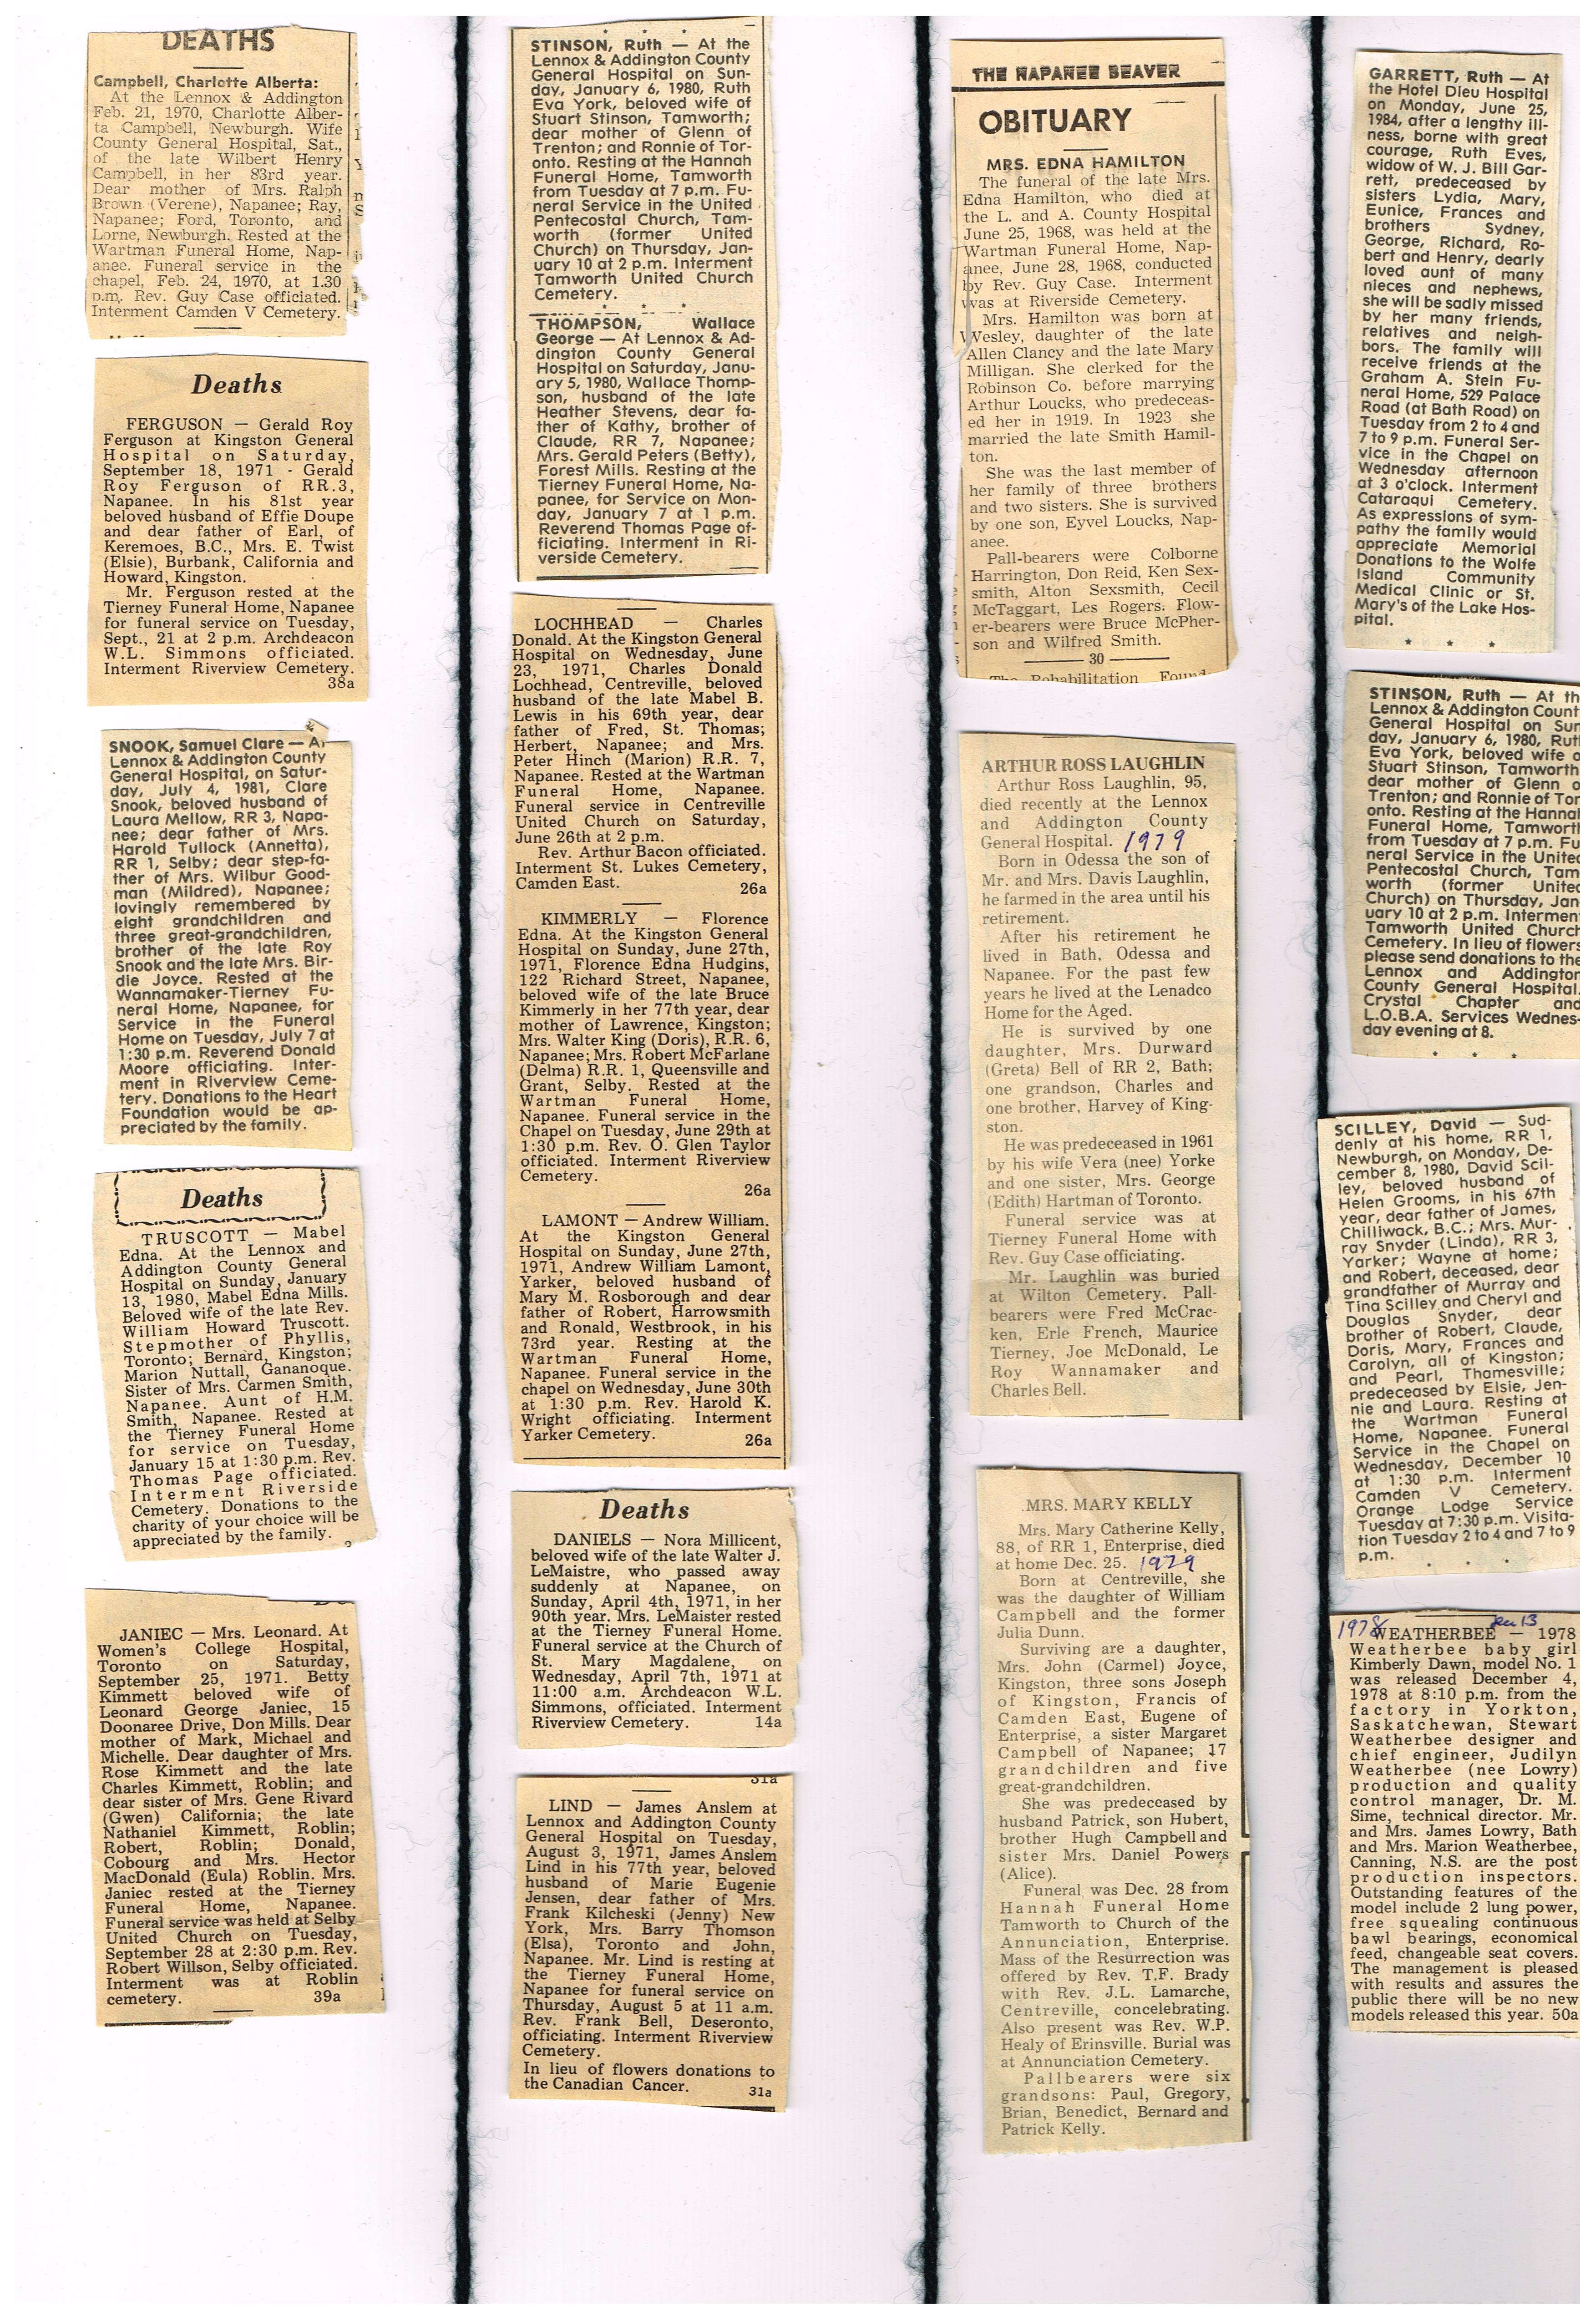 DEATHS
Campbell, Charlotte Alberta:
At the Lennox & Addington
Feb. 21, 1970, Charlotte Alber-
ta Campbell, Newburgh. Wife
County General Hospital, Sat.,
of the late Wilbert Henry
Campbell, in her 83rd year.
Dear mother of Mrs. Ralph
Brown (Verene), Napanee; Ray,
Napanee; Ford, Toronto, and
Lorne, Newburgh. Rested at the
Wartman Funeral Home, Nap-
anee. Funeral service in the
chapel, Feb. 24, 1970, at 1.30
p.m. Rev. Guy Case officiated.
Interment Camden V Cemetery.
Deaths
FERGUSON — Gerald Roy
Ferguson at Kingston General
Hospital on Saturday,
September 18, 1971 - Gerald
Roy Ferguson of RR.3,
Napanee. In his 81st year
beloved husband of Effie Doupe
and dear father of Earl, of
Keremoes, B.C., Mrs. E. Twist
(Elsie), Burbank, California and
Howard, Kingston.
Mr. Ferguson rested at the
Tierney Funeral Home, Napanee
for funeral service on Tuesday,
Sept., 21 at 2 p.m. Archdeacon
W.L. Simmons officiated.
Interment Riverview Cemetery.
38a
SNOOK, Samuel Clare — At
Lennox & Addington County
General Hospital, on Satur-
day, July 4, 1981, Clare
Snook, beloved husband of
Laura Mellow, RR 3, Napa-
nee; dear father of Mrs.
Harold Tullock (Annetta),
RR 1, Selby; dear step-fa-
ther of Mrs. Wilbur Good-
man (Mildred), Napanee;
lovingly remembered by
eight grandchildren and
three great-grandchildren,
brother of the late Roy
Snook and the late Mrs. Bir-
die Joyce. Rested at the
Wannamaker-Tierney Fu-
neral Home, Napanee, for
Service in the Funeral
Home on Tuesday, July 7 at
1:30 p.m. Reverend Donald
Moore officiating. Inter-
ment in Riverview Ceme-
tery. Donations to the Heart
Foundation would be ap-
preciated by the family.
Deaths
TRUSCOTT — Mabel
Edna. At the Lennox and
Addington County General
Hospital on Sunday, January
13, 1980, Mabel Edna Mills.
Beloved wife of the late Rev.
William Howard Truscott.
Stepmother of Phyllis,
Toronto; Bernard, Kingston;
Marion Nuttall, Gananoque.
Sister of Mrs. Carmen Smith,
Napanee. Aunt of H.M.
Smith, Napanee. Rested at
the Tierney Funeral Home
for service on Tuesday,
January 15 at 1:30 p.m. Rev.
Thomas Page officiated.
Interment Riverside
Cemetery. Donations to the
charity of your choice will be
appreciated by the family.
JANIEC — Mrs. Leonard. At
Women's College Hospital,
Toronto on Saturday,
September 25, 1971. Betty
Kimmett beloved wife of
Leonard George Janiec, 15
Doonaree Drive, Don Mills. Dear
mother of Mark, Michael and
Michelle. Dear daughter of Mrs.
Rose Kimmett and the late
Charles Kimmett, Roblin; and
dear sister of Mrs. Gene Rivard
(Gwen) California; the late
Nathaniel Kimmett, Roblin;
Robert, Roblin; Donald,
Cobourg and Mrs. Hector
MacDonald (Eula) Roblin. Mrs.
Janiec rested at the Tierney
Funeral Home, Napanee.
Funeral service was held at Selby
United Church on Tuesday,
September 28 at 2:30 p.m. Rev.
Robert Willson, Selby officiated.
Interment was at Roblin
cemetery. 39a
STINSON, Ruth — At the
Lennox & Addington County
General Hospital on Sun-
day, January 6, 1980, Ruth
Eva York, beloved wife of
Stuart Stinson, Tamworth;
dear mother of Glenn of
Trenton; and Ronnie of Tor-
onto. Resting at the Hannah
Funeral Home, Tamworth
from Tuesday at 7 p.m. Fu-
neral Service in the United
Pentecostal Church, Tam-
worth (former United
Church) on Thursday, Jan-
uary 10 at 2 p.m. Interment
Tamworth United Church
Cemetery.
THOMPSON, Wallace
George — At Lennox & Ad-
dington County General
Hospital on Saturday, Janu-
ary 5, 1980, Wallace Thomp-
son, husband of the late
Heather Stevens, dear fa-
ther of Kathy, brother of
Claude, RR 7, Napanee;
Mrs. Gerald Peters (Betty),
Forest Mills. Resting at the
Tierney Funeral Home, Na-
panee, for Service on Mon-
day, January 7 at 1 p.m.
Reverend Thomas Page of-
ficiating. Interment in Ri-
verside Cemetery.
LOCHHEAD — Charles
Donald. At the Kingston General
Hospital on Wednesday, June
23, 1971, Charles Donald
Lochhead, Centreville, beloved
husband of the late Mabel B.
Lewis in his 69th year, dear
father of Fred, St. Thomas;
Herbert, Napanee; and Mrs.
Peter Hinch (Marion) R.R. 7,
Napanee. Rested at the Wartman
Funeral Home, Napanee.
Funeral service in Centreville
United Church on Saturday,
June 26th at 2 p.m.
Rev. Arthur Bacon officiated.
Interment St. Lukes Cemetery,
Camden East. 26a
KIMMERLY — Florence
Edna. At the Kingston General
Hospital on Sunday, June 27th,
1971, Florence Edna Hudgins,
122 Richard Street, Napanee,
beloved wife of the late Bruce
Kimmerly in her 77th year, dear
mother of Lawrence, Kingston;
Mrs. Walter King (Doris), R.R. 6,
Napanee; Mrs. Robert McFarlane
(Delma) R.R. 1, Queensville and
Grant, Selby. Rested at the
Wartman Funeral Home,
Napanee. Funeral service in the
Chapel on Tuesday, June 29th at
1:30 p.m. Rev. O. Glen Taylor
officiated. Interment Riverview
Cemetery.
26a
LAMONT — Andrew William.
At the Kingston General
Hospital on Sunday, June 27th,
1971, Andrew William Lamont,
Yarker, beloved husband of
Mary M. Rosborough and dear
father of Robert, Harrowsmith
and Ronald, Westbrook, in his
73rd year. Resting at the
Wartman Funeral Home,
Napanee. Funeral service in the
chapel on Wednesday, June 30th
at 1:30 p.m. Rev. Harold K.
Wright officiating. Interment
Yarker Cemetery. 26a
Deaths
DANIELS — Nora Millicent,
beloved wife of the late Walter J.
LeMaistre, who passed away
suddenly at Napanee, on
Sunday, April 4th, 1971, in her
90th year. Mrs. LeMaister rested
at the Tierney Funeral Home.
Funeral service at the Church of
St. Mary Magdalene, on
Wednesday, April 7th, 1971 at
11:00 a.m. Archdeacon W.L.
Simmons, officiated. Interment
Riverview Cemetery. 14a
31a
LIND — James Anslem at
Lennox and Addington County
General Hospital on Tuesday,
August 3, 1971, James Anslem
Lind in his 77th year, beloved
husband of Marie Eugenie
Jensen, dear father of Mrs.
Frank Kilcheski (Jenny) New
York, Mrs. Barry Thomson
(Elsa), Toronto and John,
Napanee. Mr. Lind is resting at
the Tierney Funeral Home,
Napanee for funeral service on
Thursday, August 5 at 11 a.m.
Rev. Frank Bell, Deseronto,
officiating. Interment Riverview
Cemetery.
In lieu of flowers donations to
the Canadian Cancer. 31a
THE NAPANEE BEAVER
OBITUARY
MRS. EDNA HAMILTON
The funeral of the late Mrs.
Edna Hamilton, who died at
the L. and A. County Hospital
June 25, 1968, was held at the
Wartman Funeral Home, Nap-
anee, June 28, 1968, conducted
by Rev. Guy Case. Interment
was at Riverside Cemetery.
Mrs. Hamilton was born at
Wesley, daughter of the late
Allen Clancy and the late Mary
Milligan. She clerked for the
Robinson Co. before marrying
Arthur Loucks, who predeceas-
ed her in 1919. In 1923 she
married the late Smith Hamil-
ton.
She was the last member of
her family of three brothers
and two sisters. She is survived
by one son, Eyvel Loucks, Nap-
anee.
Pall-bearers were Colborne
Harrington, Don Reid, Ken Sex-
smith, Alton Sexsmith, Cecil
McTaggart, Les Rogers. Flow-
er-bearers were Bruce McPher-
son and Wilfred Smith.
30
The Rehabilitation Found-
ARTHUR ROSS LAUGHLIN
Arthur Ross Laughlin, 95,
died recently at the Lennox
and Addington County
General Hospital. 1979
Born in Odessa the son of
Mr. and Mrs. Davis Laughlin,
he farmed in the area until his
retirement.
After his retirement he
lived in Bath, Odessa and
Napanee. For the past few
years he lived at the Lenadco
Home for the Aged.
He is survived by one
daughter, Mrs. Durward
(Greta) Bell of RR 2, Bath;
one grandson, Charles and
one brother, Harvey of King-
ston.
He was predeceased in 1961
by his wife Vera (nee) Yorke
and one sister, Mrs. George
(Edith) Hartman of Toronto.
Funeral service was at
Tierney Funeral Home with
Rev. Guy Case officiating.
Mr. Laughlin was buried
at Wilton Cemetery. Pall-
bearers were Fred McCrac-
ken, Erle French, Maurice
Tierney, Joe McDonald, Le
Roy Wannamaker and
Charles Bell.
MRS. MARY KELLY
Mrs. Mary Catherine Kelly,
88, of RR 1, Enterprise, died
at home Dec. 25. 1979
Born at Centreville, she
was the daughter of William
Campbell and the former
Julia Dunn.
Surviving are a daughter,
Mrs. John (Carmel) Joyce,
Kingston, three sons Joseph
of Kingston, Francis of
Camden East, Eugene of
Enterprise, a sister Margaret
Campbell of Napanee; 17
grandchildren and five
great-grandchildren.
She was predeceased by
husband Patrick, son Hubert,
brother Hugh Campbell and
sister Mrs. Daniel Powers
(Alice).
Funeral was Dec. 28 from
Hannah Funeral Home
Tamworth to Church of the
Annunciation, Enterprise.
Mass of the Resurrection was
offered by Rev. T.F. Brady
with Rev. J.L. Lamarche,
Centreville, concelebrating.
Also present was Rev. W.P.
Healy of Erinsville. Burial was
at Annunciation Cemetery.
Pallbearers were six
grandsons: Paul, Gregory,
Brian, Benedict, Bernard and
Patrick Kelly.
GARRETT, Ruth — At
the Hotel Dieu Hospital
on Monday, June 25,
1984, after a lengthy ill-
ness, borne with great
courage, Ruth Eves,
widow of W. J. Bill Gar-
rett, predeceased by
sisters Lydia, Mary,
Eunice, Frances and
brothers Sydney,
George, Richard, Ro-
bert and Henry, dearly
loved aunt of many
nieces and nephews,
she will be sadly missed
by her many friends,
relatives and neigh-
bors. The family will
receive friends at the
Graham A. Stein Fu-
neral Home, 529 Palace
Road (at Bath Road) on
Tuesday from 2 to 4 and
7 to 9 p.m. Funeral Ser-
vice in the Chapel on
Wednesday afternoon
at 3 o'clock. Interment
Cataraqui Cemetery.
As expressions of sym-
pathy the family would
appreciate Memorial
Donations to the Wolfe
Island Community
Medical Clinic or St.
Mary's of the Lake Hos-
pital.
STINSON, Ruth — At th
Lennox & Addington Count
General Hospital on Sun
day, January 6, 1980, Rut
Eva York, beloved wife o
Stuart Stinson, Tamworth
dear mother of Glenn o
Trenton; and Ronnie of Tor
onto. Resting at the Hannah
Funeral Home, Tamworth
from Tuesday at 7 p.m. Fu
neral Service in the United
Pentecostal Church, Tam
worth (former United
Church) on Thursday, Jan
uary 10 at 2 p.m. Interment
Tamworth United Church
Cemetery. In lieu of flowers
please send donations to the
Lennox and Addington
County General Hospital.
Crystal Chapter and
L.O.B.A. Services Wednes-
day evening at 8.
SCILLEY, David — Sud-
denly at his home, RR 1,
Newburgh, on Monday, De-
cember 8, 1980, David Scil-
ley, beloved husband of
Helen Grooms, in his 67th
year, dear father of James,
Chilliwack, B.C.; Mrs. Mur-
ray Snyder (Linda), RR 3,
Yarker; Wayne at home;
and Robert, deceased, dear
grandfather of Murray and
Tina Scilley and Cheryl and
Douglas Snyder, dear
brother of Robert, Claude,
Doris, Mary, Frances and
Carolyn, all of Kingston;
and Pearl, Thamesville;
predeceased by Elsie, Jen-
nie and Laura. Resting at
the Wartman Funeral
Home, Napanee. Funeral
Service in the Chapel on
Wednesday, December 10
at 1:30 p.m. Interment
Camden V Cemetery.
Orange Lodge Service
Tuesday at 7:30 p.m. Visita-
tion Tuesday 2 to 4 and 7 to 9
p.m.
1978 13
WEATHERBEE — 1978
Weatherbee baby girl
Kimberly Dawn, model No. 1
was released December 4,
1978 at 8:10 p.m. from the
factory in Yorkton,
Saskatchewan, Stewart
Weatherbee designer and
chief engineer, Judilyn
Weatherbee (nee Lowry)
production and quality
control manager, Dr. M.
Sime, technical director. Mr.
and Mrs. James Lowry, Bath
and Mrs. Marion Weatherbee,
Canning, N.S. are the post
production inspectors.
Outstanding features of the
model include 2 lung power,
free squealing continuous
bawl bearings, economical
feed, changeable seat covers.
The management is pleased
with results and assures the
public there will be no new
models released this year. 50a